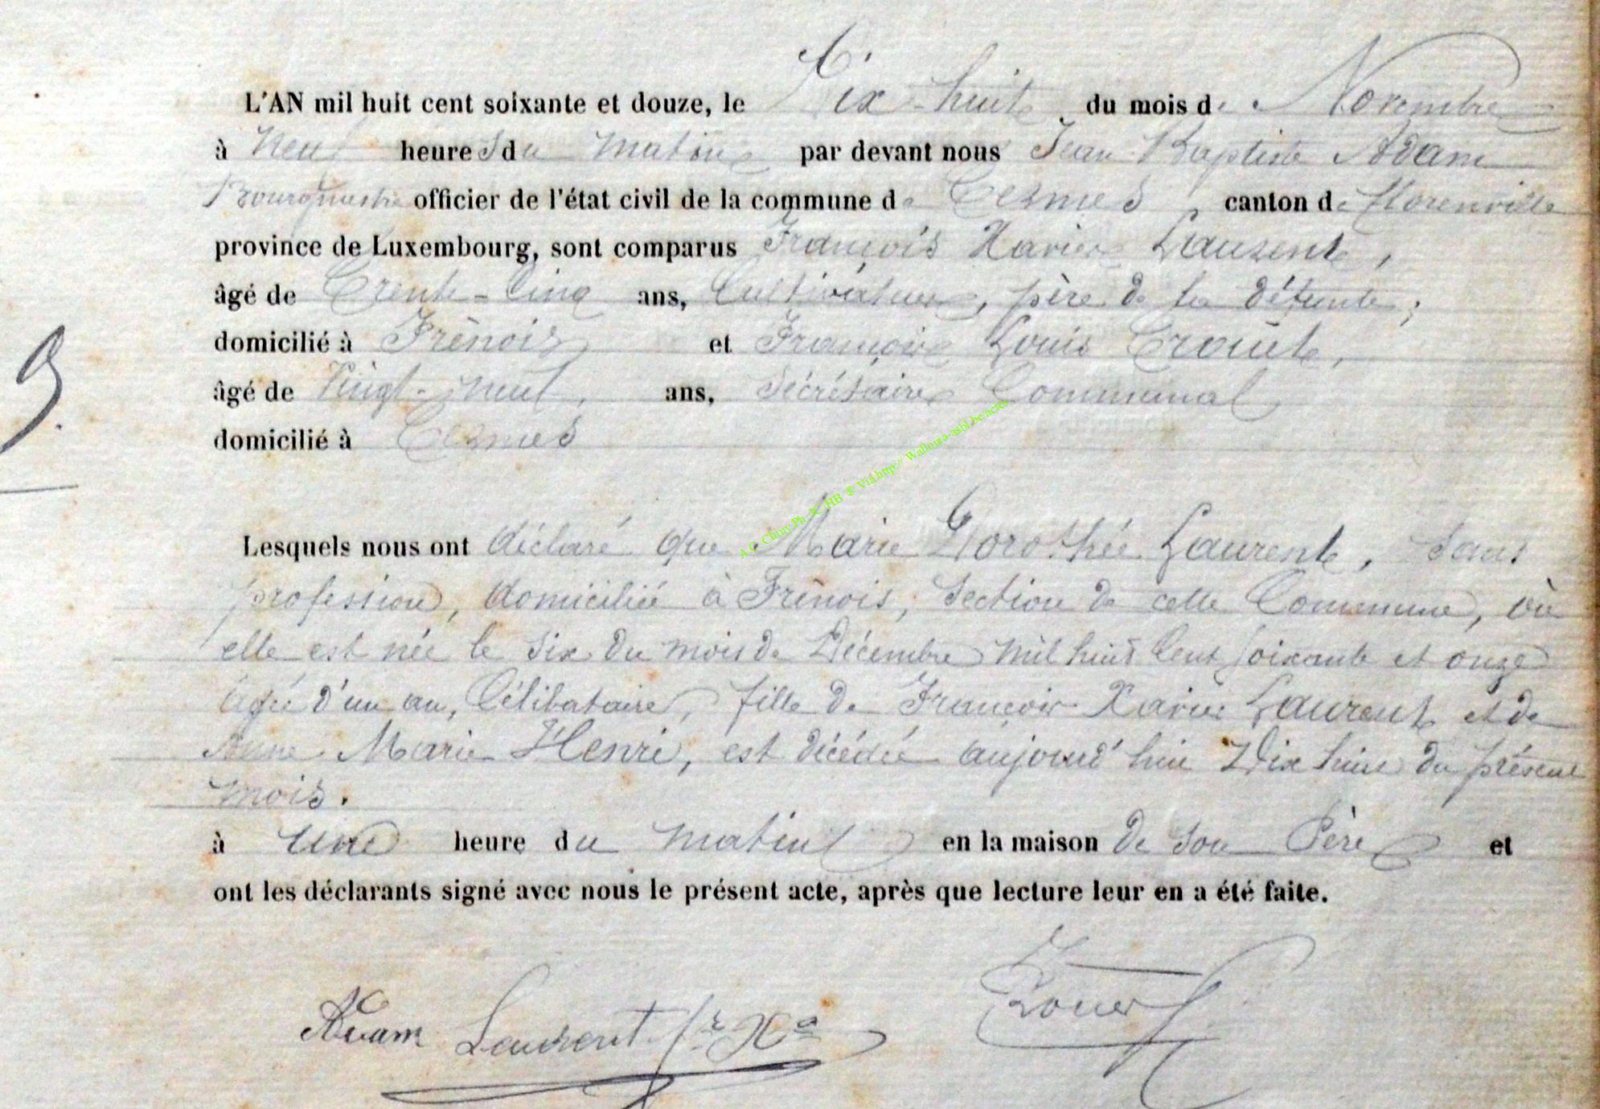 L'AN mil huit cent soixante et douze, le Dix-huit du mois de Novembre
à Neuf heures du matin par devant nous Jean Baptiste Adam
Bourgmestre officier de l'état civil de la commune de Termes, canton de Florenville
province de Luxembourg, sont comparus François Xavier Laurent,
âgé de Trente-Cinq ans, Cultivateur, père de la défunte;
domicilié à Frênois et François Louis
âgé de Vingt-neuf, ans, Sécrétaire Communal
domicilié à Termes
9.
Lesquels nous ont déclaré que Marie Dorothée Laurent, sans
profession, domiciliée à Frênois, section de cette Commune, où
elle est née le six du mois de Décembre mil huit Cent soixante et onze
âgée d'un an, Célibataire, fille de François Xavier Laurent et de
Anne Marie Henri, est décédée aujourd'hui Dix huit du présent
mois.
à une heure du matin en la maison de son Père et
ont les déclarants signé avec nous le présent acte, après que lecture leur en a été faite.
Adam Laurent fr Xer